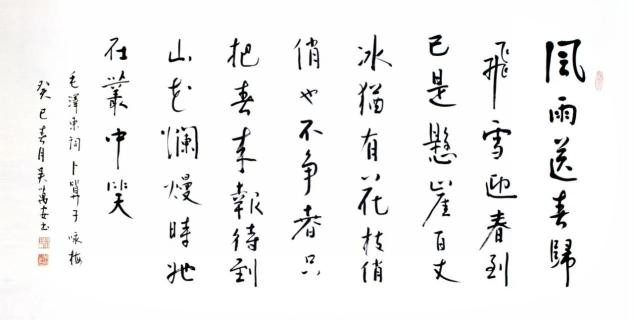 風雨送春歸
飛雪迎春到
已是懸崖百丈
冰猶有花枝俏
俏也不争春只
把春来報待到
山花爛熳時她
在叢中笑
毛澤東詞卜算子咏梅
癸巳春月吴萬安书